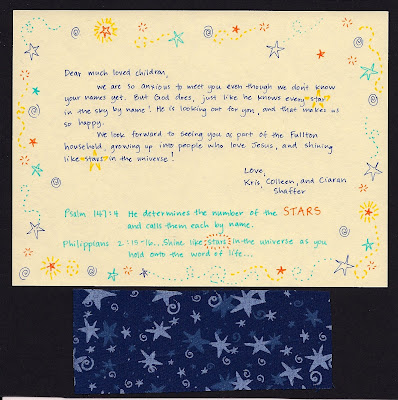 Dear much loved children,
We are so anxious to meet you even though we don't know
your names yet. But God does, just like he knows every star
in the sky by name! He is looking out for you, and that makes us
so happy.
We look forward to seeing you as part of the Fullton
household, growing up into people who love Jesus, and shining
like stars in the universe!
Love,
Kris, Colleen, and Ciaran
Shaffer
Psalm 147:4 He determines the number of the STARS
and calls them each by name.
Philippians 2:15-16...Shine like stars in the universe as you
hold onto the word of life...